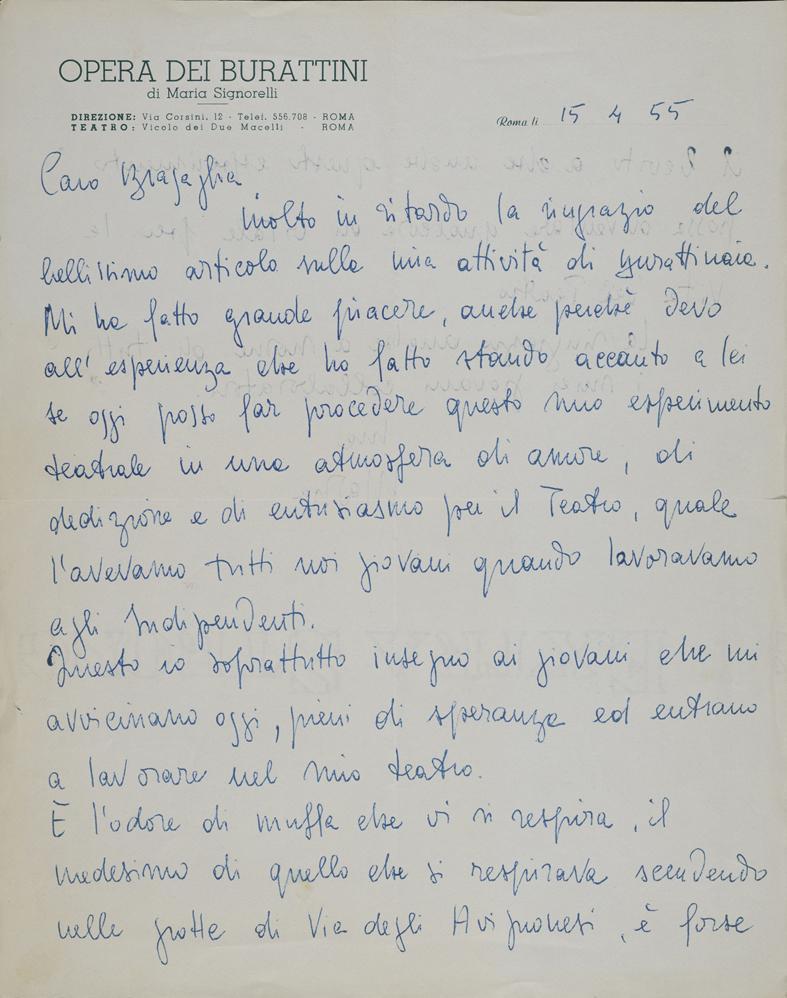 OPERA DEI BURATTINI
di Maria Signorelli
DIREZIONE: Via Corsini, 12 - Telef. 556.708 - ROMA
TEATRO: Vicolo dei Due Macelli - ROMA
Roma li 15 4 55
Caro Bragaglia
molto in ritardo la ringrazio del
bellissimo articolo sulla mia attività di burattinaia.
Mi ha fatto grande piacere, anche perché devo
all'esperienza che ho fatto stando accanto a lei
se oggi posso far procedere questo mio esperimento
teatrale in una atmosfera di amore, di
dedizione e di entusiasmo per il Teatro, quale
l'avevamo tutti noi giovani quando lavoravamo
agli Indipendenti.
Questo io soprattutto insegno ai giovani che mi
avvicinano oggi, pieni di speranza ed entrano
a lavorare nel mio teatro.
È l'odore di muffa che vi si respira, il
medesimo di quello che si respirava scendendo
nelle grotte di Via degli Avignonesi, è forse